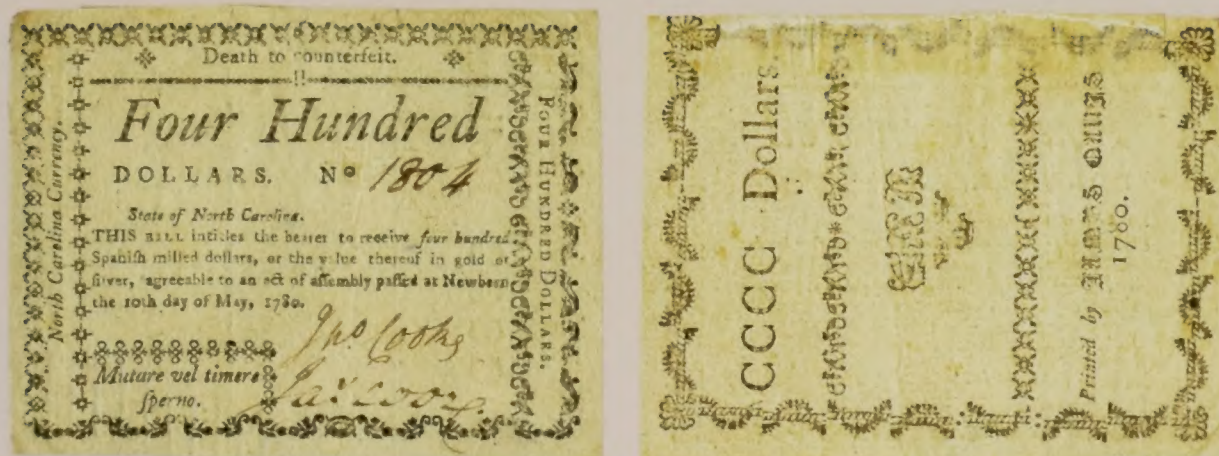 Death to counterfeit.
Four Hundred
DOLLARS. Nº 1804
State of North Carolina.
THIS BILL intitles the bearer to receive four hundred
Spaniſh milled dollars, or the value thereof in gold or
ſilver, agreeable to an act of aſſembly paſſed at Newbern
the 10th day of May, 1780.
Jno Cooke
Mutare vel timere
ſperno.
North Carolina Currency.
FOUR HUNDRED DOLLARS.
CCCC Dollars.
Printed by JAMES
1780.